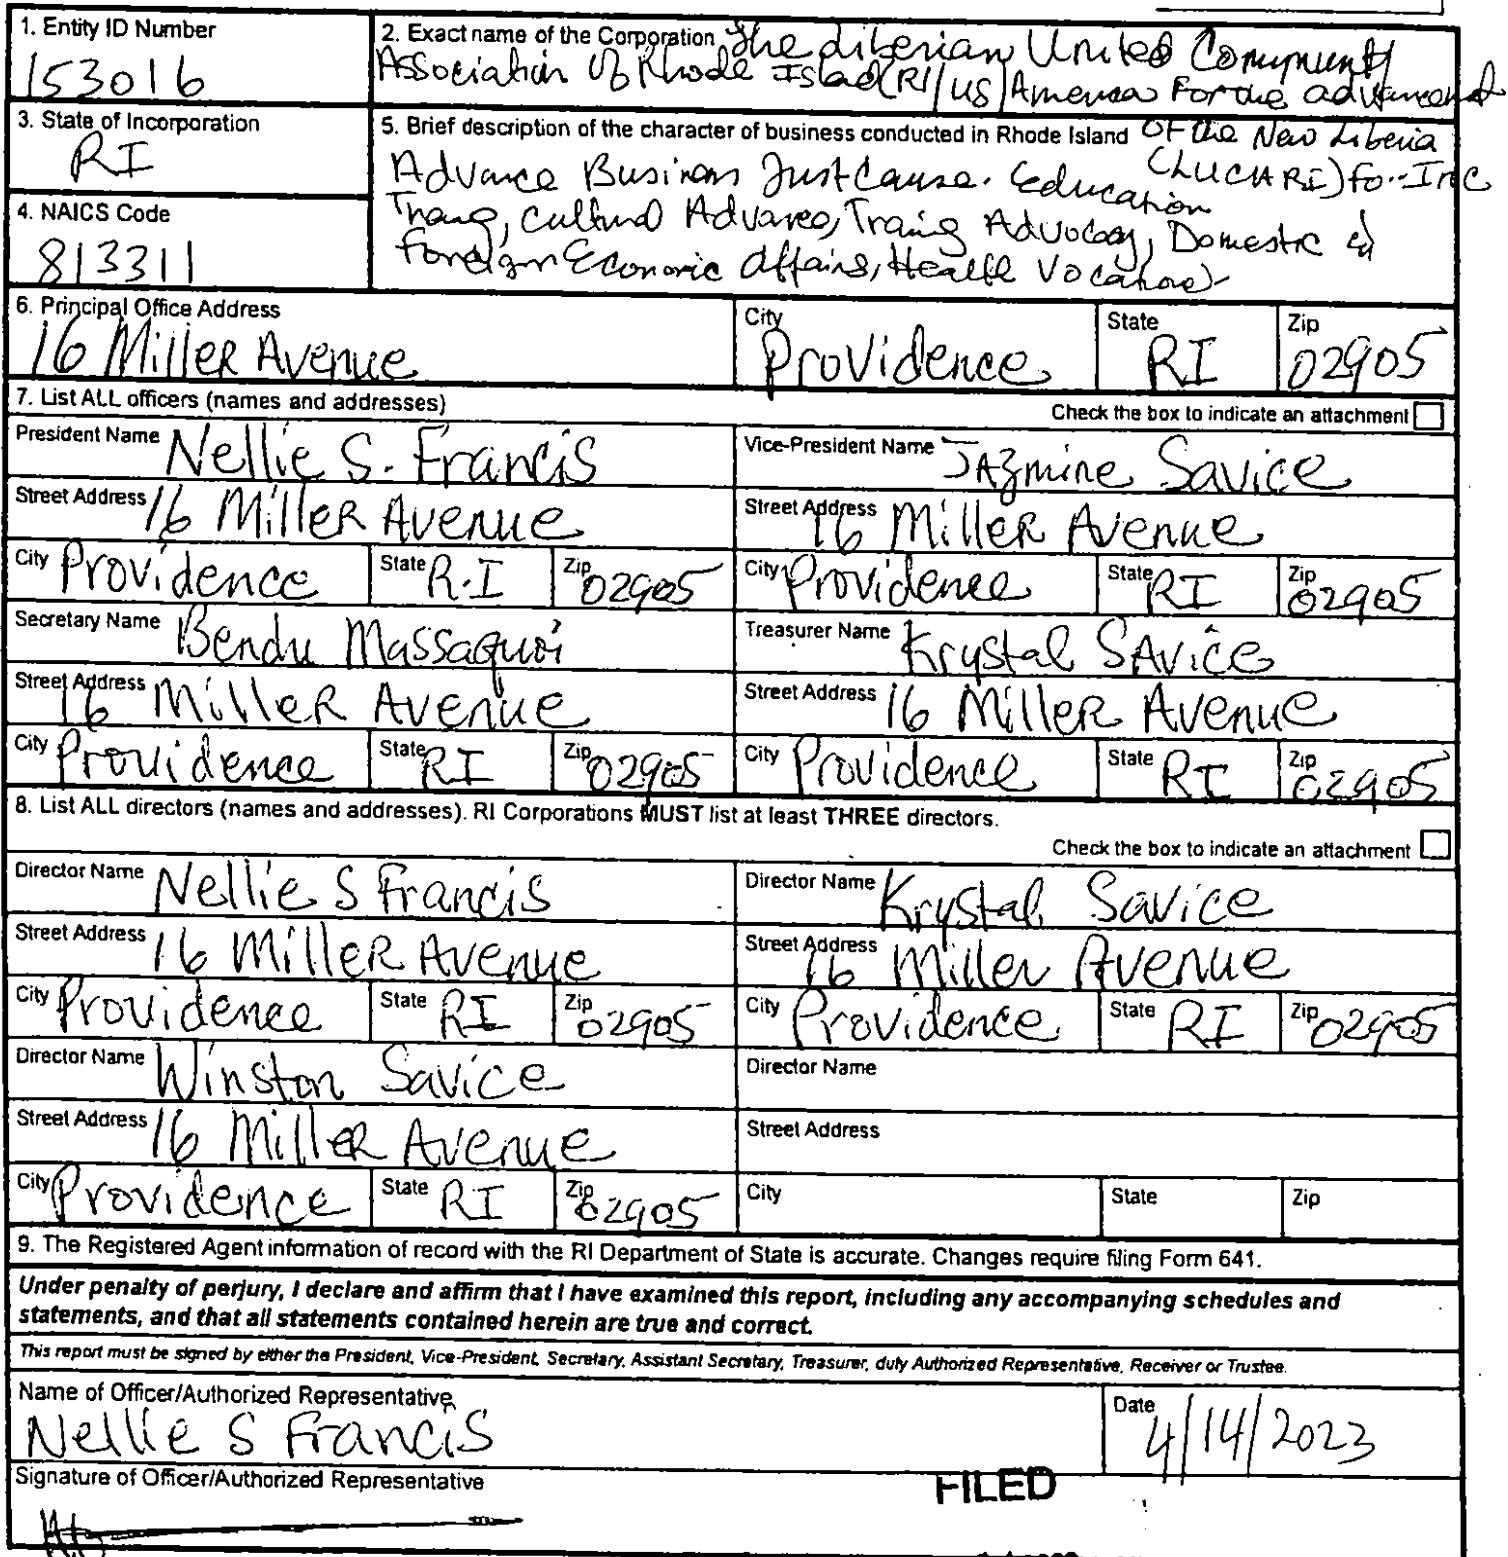 1. Entity ID Number
153016
2. Exact name of the Corporation The Liberian United Community
Association Of Rhode Island (RI/US) America For the advancement
of the New Liberia
(LUCARI) Fo--Inc
3. State of Incorporation
RI
4. NAICS Code
813311
5. Brief description of the character of business conducted in Rhode Island
Advance Business Just Cause. Education
Traing, Cultural Advance, Traing Advocacy, Domestic &
Foreign Economic Affairs, Health Vocational
6. Principal Office Address
16 Miller Avenue
City
Providence
State
RI
Zip
02905
7. List ALL officers (names and addresses)
Check the box to indicate an attachment
President Name Nellie S. Francis
Vice-President Name Jazmine Savice
Street Address 16 Miller Avenue
Street Address 16 Miller Avenue
City Providence State R.I Zip 02905
City Providence State RI Zip 02905
Secretary Name Bendu Massaquoi
Treasurer Name Krystal Savice
Street Address 16 Miller Avenue
Street Address 16 Miller Avenue
City Providence State RI Zip 02905
City Providence State RI Zip 02905
8. List ALL directors (names and addresses). RI Corporations MUST list at least THREE directors.
Check the box to indicate an attachment
Director Name Nellie S Francis
Director Name Krystal Savice
Street Address 16 Miller Avenue
Street Address 16 Miller Avenue
City Providence State RI Zip 02905
City Providence State RI Zip 02905
Director Name Winston Savice
Director Name
Street Address 16 Miller Avenue
Street Address
City Providence State RI Zip 02905
City State Zip
9. The Registered Agent information of record with the RI Department of State is accurate. Changes require filing Form 641.
Under penalty of perjury, I declare and affirm that I have examined this report, including any accompanying schedules and
statements, and that all statements contained herein are true and correct.
This report must be signed by either the President, Vice-President, Secretary, Assistant Secretary, Treasurer, duly Authorized Representative, Receiver or Trustee.
Name of Officer/Authorized Representative
Nellie S Francis
Date
4/14/2023
Signature of Officer/Authorized Representative
FILED